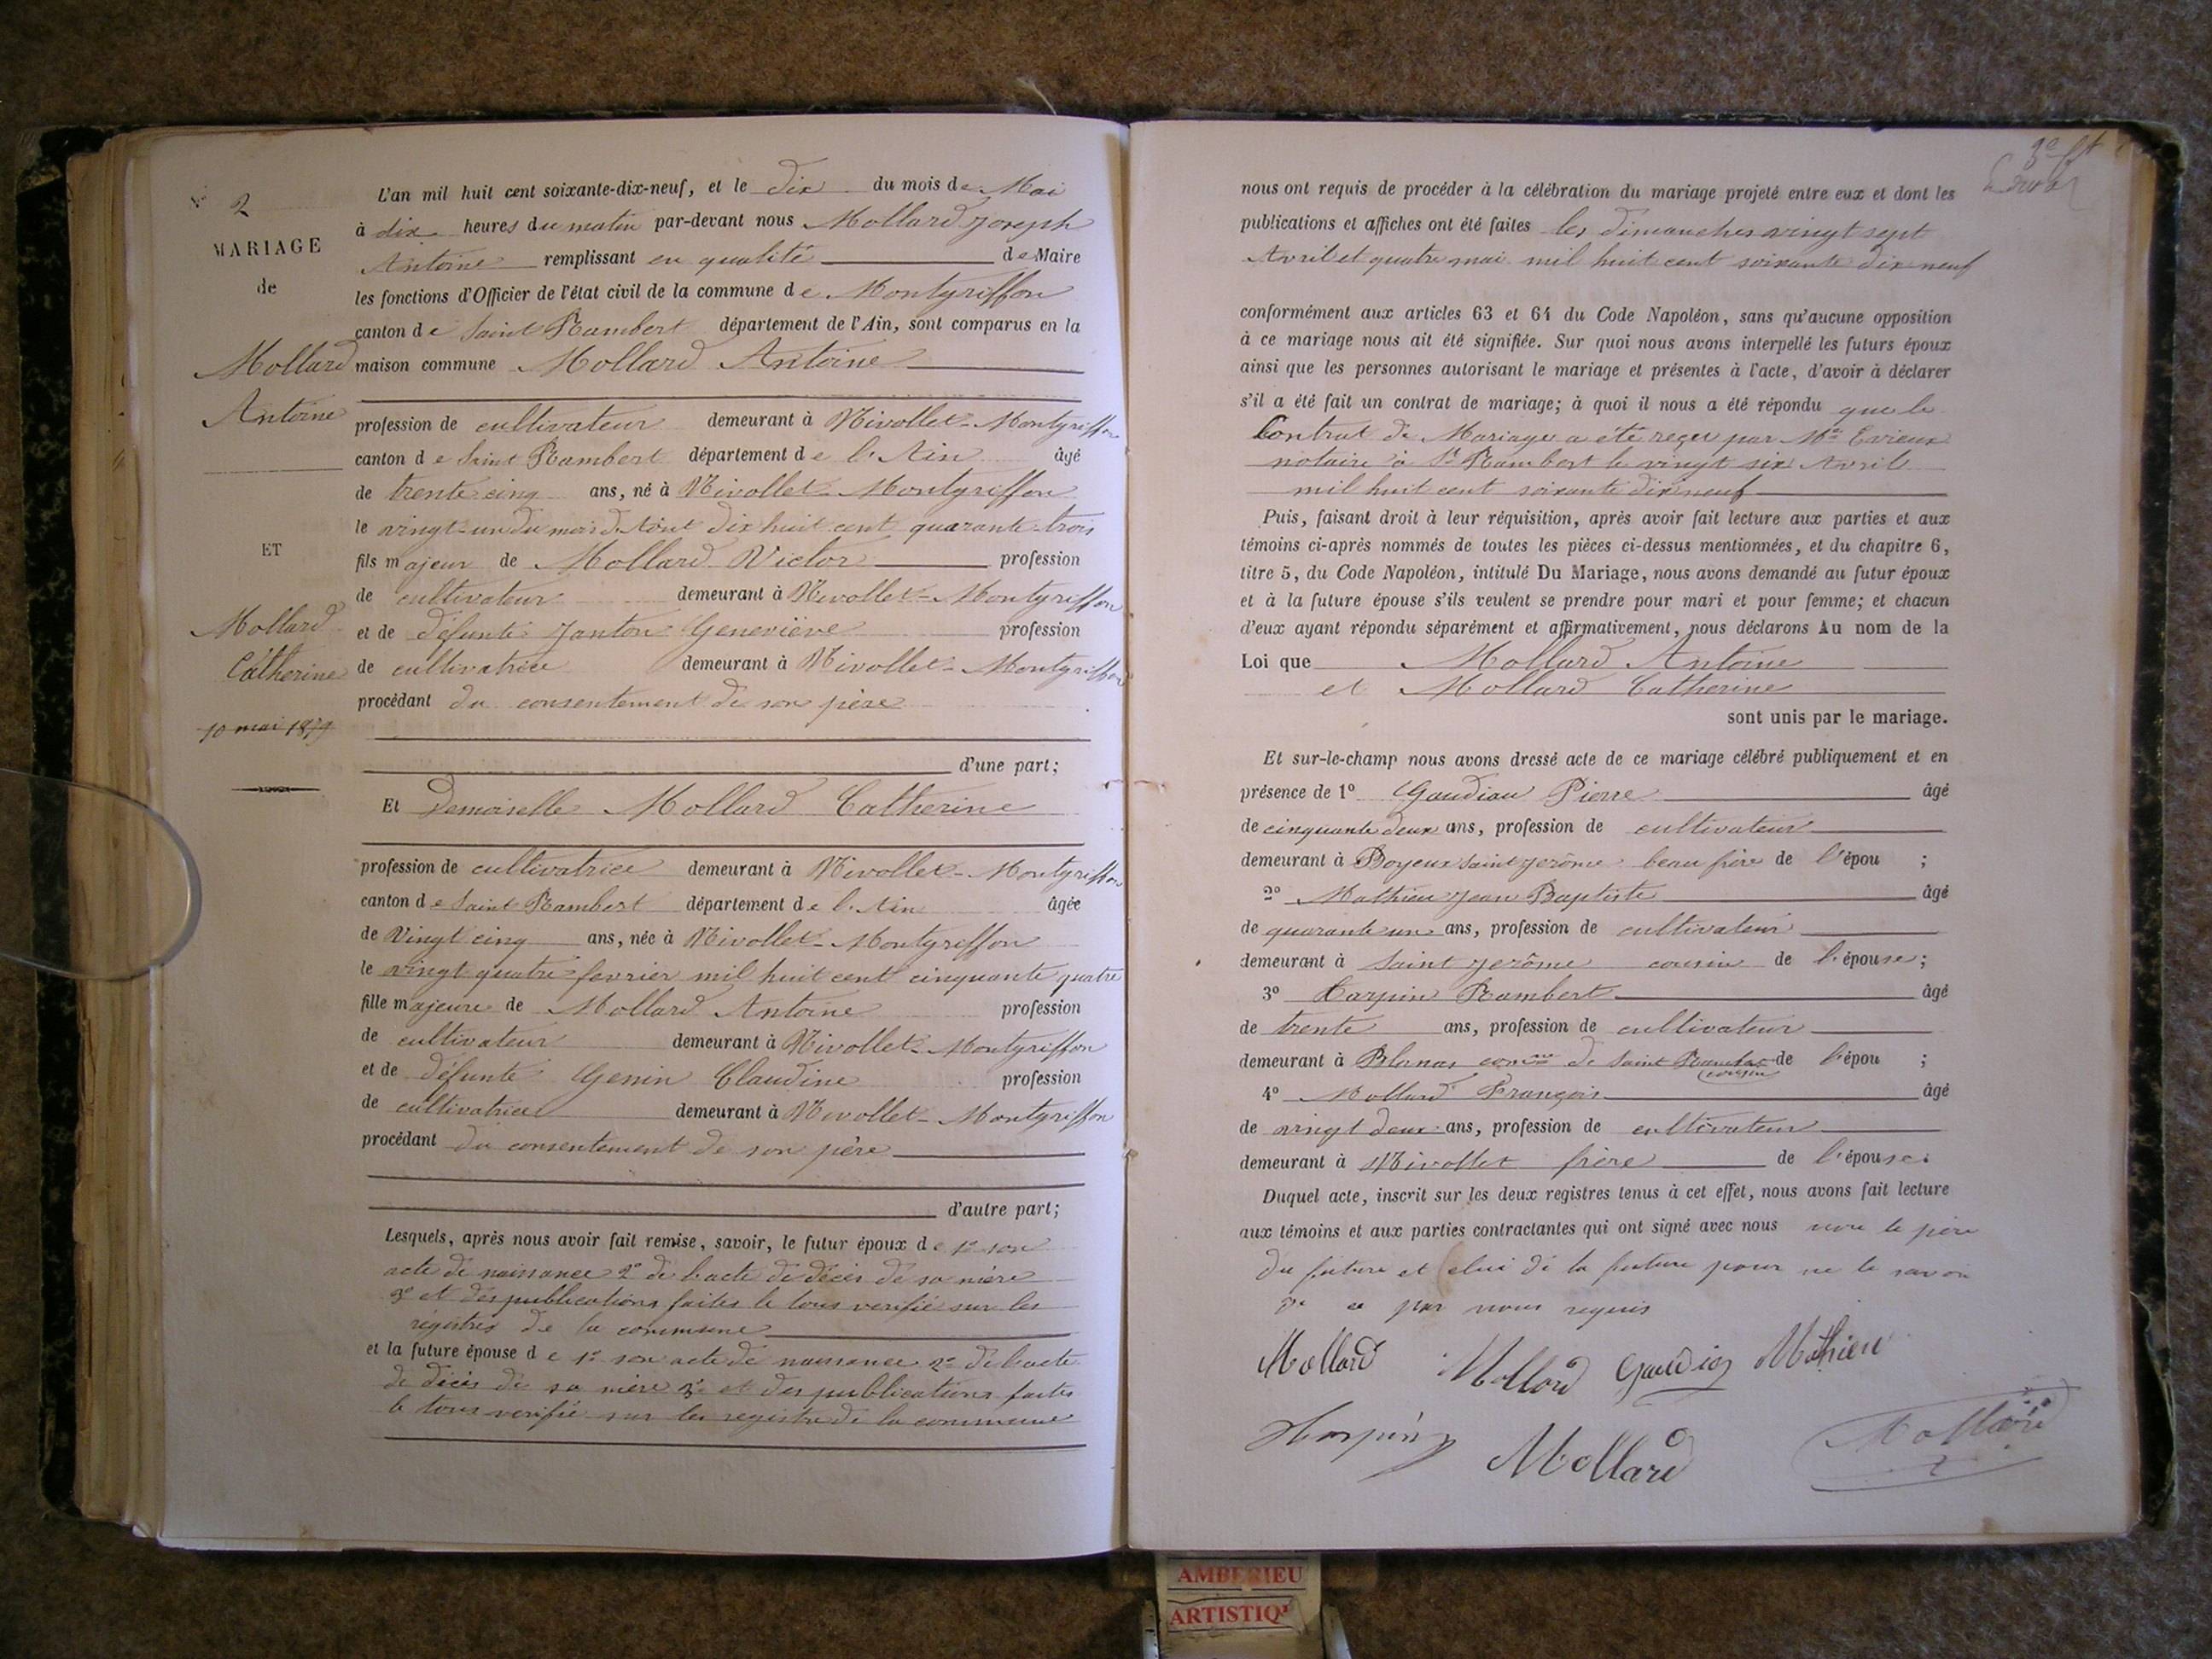 N° 2
MARIAGE
de
Mollard
Antoine
ET
Mollard
Catherine
10 mai 1879
L'an mil huit cent soixante-dix-neuf, et le dix du mois de Mai
à dix heures du matin par-devant nous Mollard Joseph
Antoine remplissant en qualité de Maire
les fonctions d'Officier de l'état civil de la commune de Montgriffon
canton de Saint Rambert département de l'Ain, sont comparus en la
maison commune Mollard Antoine
profession de cultivateur demeurant à Nivollet-Montgriffon
canton de Saint Rambert département de l'Ain âgé
de trente cinq ans, né à Nivollet-Montgriffon
le vingt-un du mois d'Aôut dix huit cent quarante-trois
fils majeur de Mollard Victor profession
de cultivateur demeurant à Nivollet-Montgriffon
et de défunte Janton Geneviève profession
de cultivatrice demeurant à Nivollet-Montgriffon
procédant du consentement de son père
d'une part;
Et Demoiselle Mollard Catherine
profession de cultivatrice demeurant à Nivollet-Montgriffon
canton de Saint Rambert département de l'Ain âgée
de Vingt cinq ans, née à Nivollet-Montgriffon
le vingt quatre fevrier mil huit cent cinquante quatre
fille majeure de Mollard Antoine profession
de cultivateur demeurant à Nivollet-Montgriffon
et de défunte Genin Claudine profession
de cultivatrice demeurant à Nivollet-Montgriffon
procédant du consentement de son père
d'autre part;
Lesquels, après nous avoir fait remise, savoir, le futur époux de 1° son
acte de naissance 2° de l'acte de décès de sa mère
3° et des publications faites le tous verifié sur les
registres de la commune
et la future épouse de 1° son acte de naissance 2° de l'acte
de décès de sa mère 3° et des publications faites
le tous verifié sur les registre de la commune
nous ont requis de procéder à la célébration du mariage projeté entre eux et dont les
publications et affiches ont été faites les dimanches vingt sept
Avril et quatre mai mil huit cent soixante dix neuf
conformément aux articles 63 et 64 du Code Napoléon, sans qu'aucune opposition
à ce mariage nous ait été signifiée. Sur quoi nous avons interpellé les futurs époux
ainsi que les personnes autorisant le mariage et présentes à l'acte, d'avoir à déclarer
s'il a été fait un contrat de mariage; à quoi il nous a été répondu que le
Contrat de Mariage a été reçu par Me Evieux
notaire à St Rambert le vingt six Avril
mil huit cent soixante dix neuf
Puis, faisant droit à leur réquisition, après avoir fait lecture aux parties et aux
témoins ci-après nommés de toutes les pièces ci-dessus mentionnées, et du chapitre 6,
titre 5, du Code Napoléon, intitulé Du Mariage, nous avons demandé au futur époux
et à la future épouse s'ils veulent se prendre pour mari et pour femme; et chacun
d'eux ayant répondu séparément et affirmativement, nous déclarons Au nom de la
Loi que Mollard Antoine
et Mollard Catherine
sont unis par le mariage.
Et sur-le-champ nous avons dressé acte de ce mariage célébré publiquement et en
présence de 1° Gaudiau Pierre âgé
de cinquante deux ans, profession de cultivateur
demeurant à Boyeux Saint Jerôme beau frère de l'épou ;
2° Mathieu Jean Baptiste âgé
de quarante un ans, profession de cultivateur
demeurant à Saint Jerôme cousin de l'épouse;
3° Harpin Rambert âgé
de trente ans, profession de cultivateur
demeurant à Blanas comne de Saint Rambert cousin de l'épou ;
4° Mollard François âgé
de vingt deux ans, profession de cultivateur
demeurant à Nivollet frère de l'épouse.
Duquel acte, inscrit sur les deux registres tenus à cet effet, nous avons fait lecture
aux témoins et aux parties contractantes qui ont signé avec nous non le père
du future et celui de la future pour ne le savoir
de ce par nous requis
Mollard Mollard Gaudion Mathieu
Harpin Mollard Mollard
AMBERIEU
ARTISTIQ